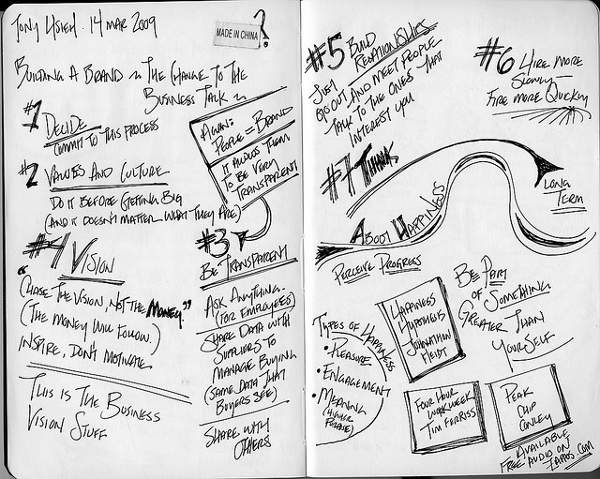 TONY HSIEH . 14 MAR 2009
MADE IN CHINA
?
BUILDING A BRAND ~ THE CHANGE TO THE
BUSINESS TALK ~
#1 DECIDE
COMMIT TO THIS PROCESS
#2 VALUES AND CULTURE
DO IT BEFORE GETTING BIG
(AND IT DOESN'T MATTER WHAT THEY ARE)
AGAIN:
PEOPLE = BRAND
IT ALLOWS THEM
TO BE VERY
TRANSPARENT
#3
BE TRANSPARENT
ASK ANYTHING.
(FOR EMPLOYEES)
SHARE DATA WITH
SUPPLIERS TO
MANAGE BUYING
(SAME DATA THAT
BUYERS SEE)
SHARE WITH
OTHERS
#4 VISION
"CHASE THE VISION, NOT THE MONEY."
(THE MONEY WILL FOLLOW.)
INSPIRE, DON'T MOTIVATE
THIS IS THE BUSINESS
VISION STUFF
#5 BUILD
RELATIONSHIPS
JUST
GO OUT AND MEET PEOPLE
TALK TO THE ONES THAT
INTEREST YOU
#6 HIRE MORE
SLOWLY—
FIRE MORE QUICKLY
#7 THINK
ABOUT HAPPINESS
LONG
TERM
PERCEIVE PROGRESS
TYPES OF HAPPINESS
• PLEASURE
• ENGAGEMENT
• MEANING
(HIGHER
PURPOSE)
HAPPINESS
HYPOTHESIS
JOHNATHON
HEIDT
BE PART
OF SOMETHING
GREATER THAN
YOURSELF
FOUR HOUR
WORKWEEK
TIM FERRISS
PEAK
CHIP
CONLEY
FREE AVAILABLE
AUDIO ON
ZAPPOS.COM